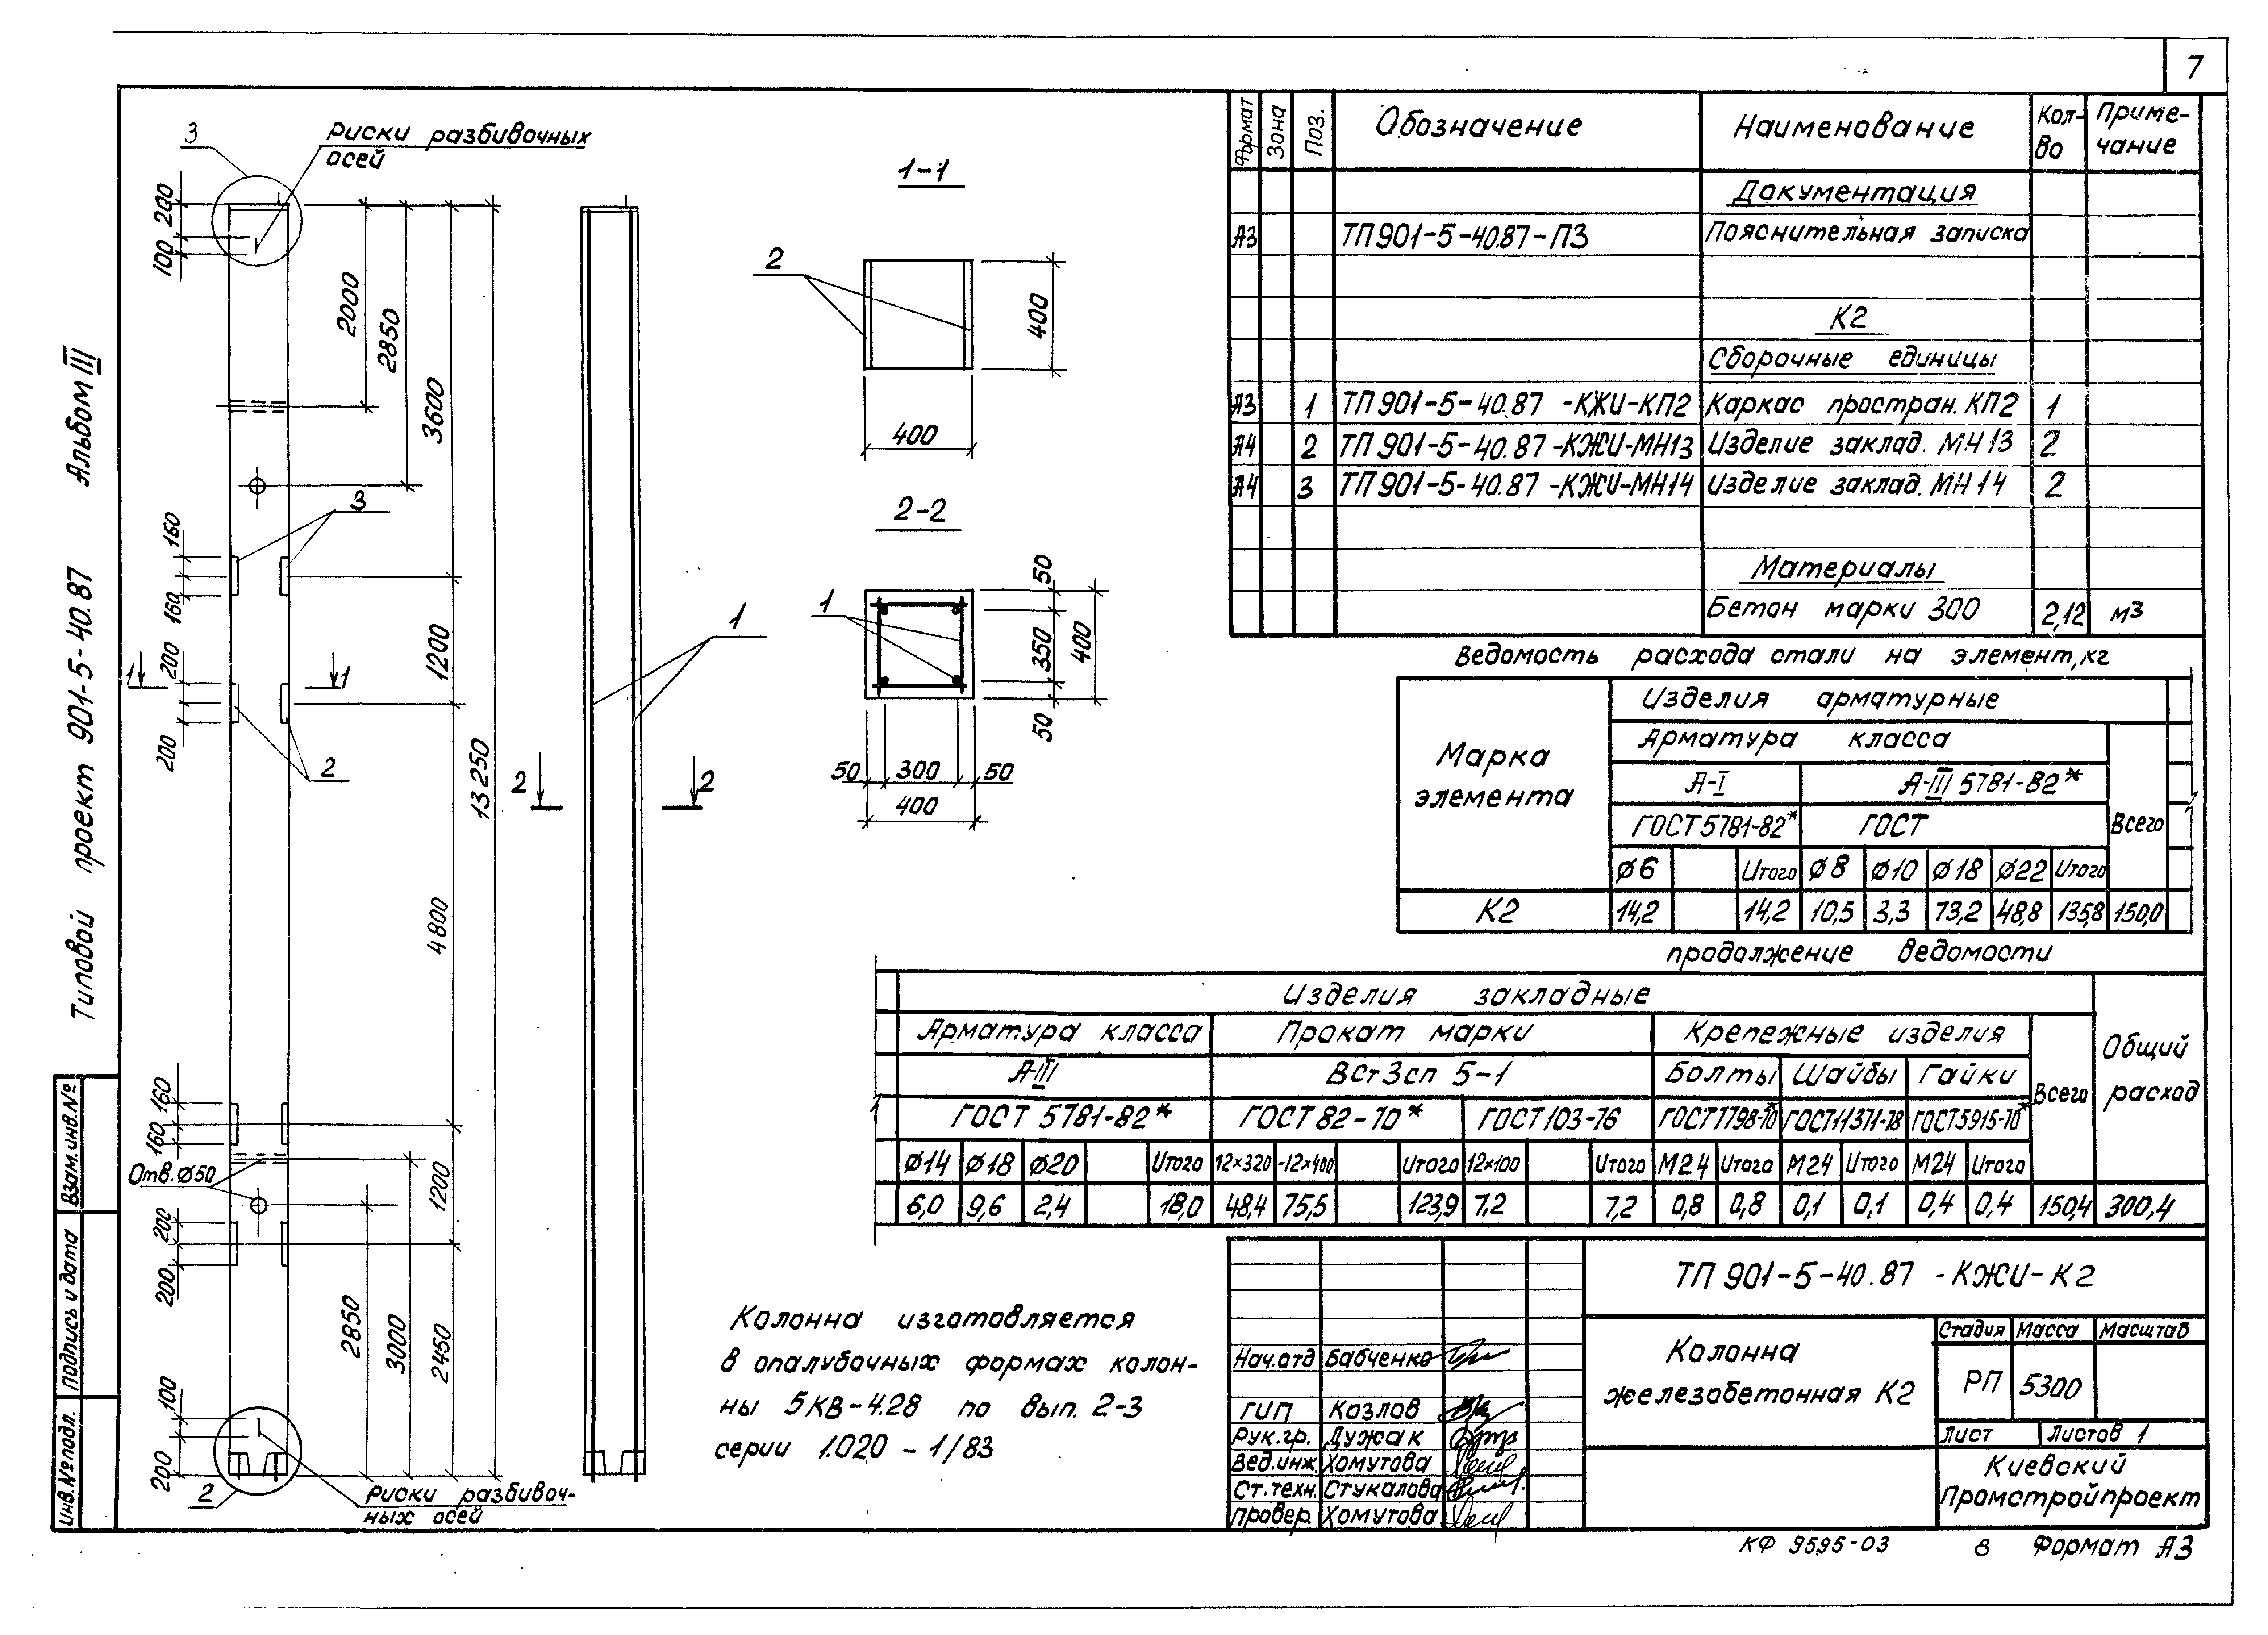 7
Типовой проект 901-5-40.87 Альбом III
Взам.инв.№
Подпись и дата
Инв.№подл.
3
Риски разбивочных
осей
200
100
2000
2850
3600
3
160
160
1
1
200
200
2
1200
13250
4800
160
160
Отв.Ø50
200
200
1200
2850
3000
2450
100
200
2
Риски разбивоч-
ных осей
1
2
2
1-1
2
400
400
2-2
1
50
350
50
400
50
300
50
400
Колонна изготовляется
в опалубочных формах колон-
ны 5КВ-4.28 по вып. 2-3
серии 1.020-1/83
Формат Зона Поз. Обозначение Наименование Кол-во Приме-чание
Документация
А3 ТП901-5-40.87-ПЗ Пояснительная записка
К2
Сборочные единицы
А3 1 ТП901-5-40.87 -КЖИ-КП2 Каркас простран. КП2 1
А4 2 ТП901-5-40.87 -КЖИ-МН13 Изделие заклад. МН13 2
А4 3 ТП901-5-40.87 -КЖИ-МН14 Изделие заклад. МН14 2
Материалы
Бетон марки 300 2,12 м3
Ведомость расхода стали на элемент,кг
Марка элемента
Изделия арматурные
Арматура класса
А-I А-III 5781-82*
ГОСТ5781-82* ГОСТ Всего
Ø6 Итого Ø8 Ø10 Ø18 Ø22 Итого
К2 14,2 14,2 10,5 3,3 73,2 48,8 135,8 150,0
продолжение ведомости
Изделия закладные
Арматура класса Прокат марки Крепежные изделия Общий расход
А-III ВСт3сп 5-1 Болты Шайбы Гайки Всего
ГОСТ 5781-82* ГОСТ82-70* ГОСТ103-76 ГОСТ7798-70* ГОСТ11371-78 ГОСТ5915-70*
Ø14 Ø18 Ø20 Итого 12×320 -12×400 Итого 12×100 Итого М24 Итого М24 Итого М24 Итого
6,0 9,6 2,4 18,0 48,4 75,5 123,9 7,2 7,2 0,8 0,8 0,1 0,1 0,4 0,4 150,4 300,4
ТП 901-5-40.87 -КЖИ-К2
Колонна
железобетонная К2
Стадия Масса Масштаб
РП 5300
Лист Листов 1
Киевский
Промстройпроект
Нач.отд Бабченко
ГИП Козлов
Рук.гр. Дужак
Вед.инж. Хомутова
Ст.техн. Стукалова
Провер. Хомутова
КФ 9595-03 8 Формат А3